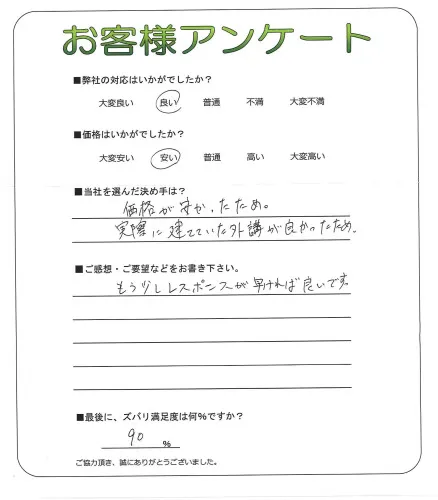 お客様アンケート
■弊社の対応はいかがでしたか？
大変良い 良い 普通 不満 大変不満
■価格はいかがでしたか？
大変安い 安い 普通 高い 大変高い
■当社を選んだ決め手は？
価格が安かったため。
実際に建てていた外講が良かったため。
■ご感想・ご要望などをお書き下さい。
もう少しレスポンスが早ければ良いです
■最後に、ズバリ満足度は何％ですか？
90 ％
ご協力頂き、誠にありがとうございました。